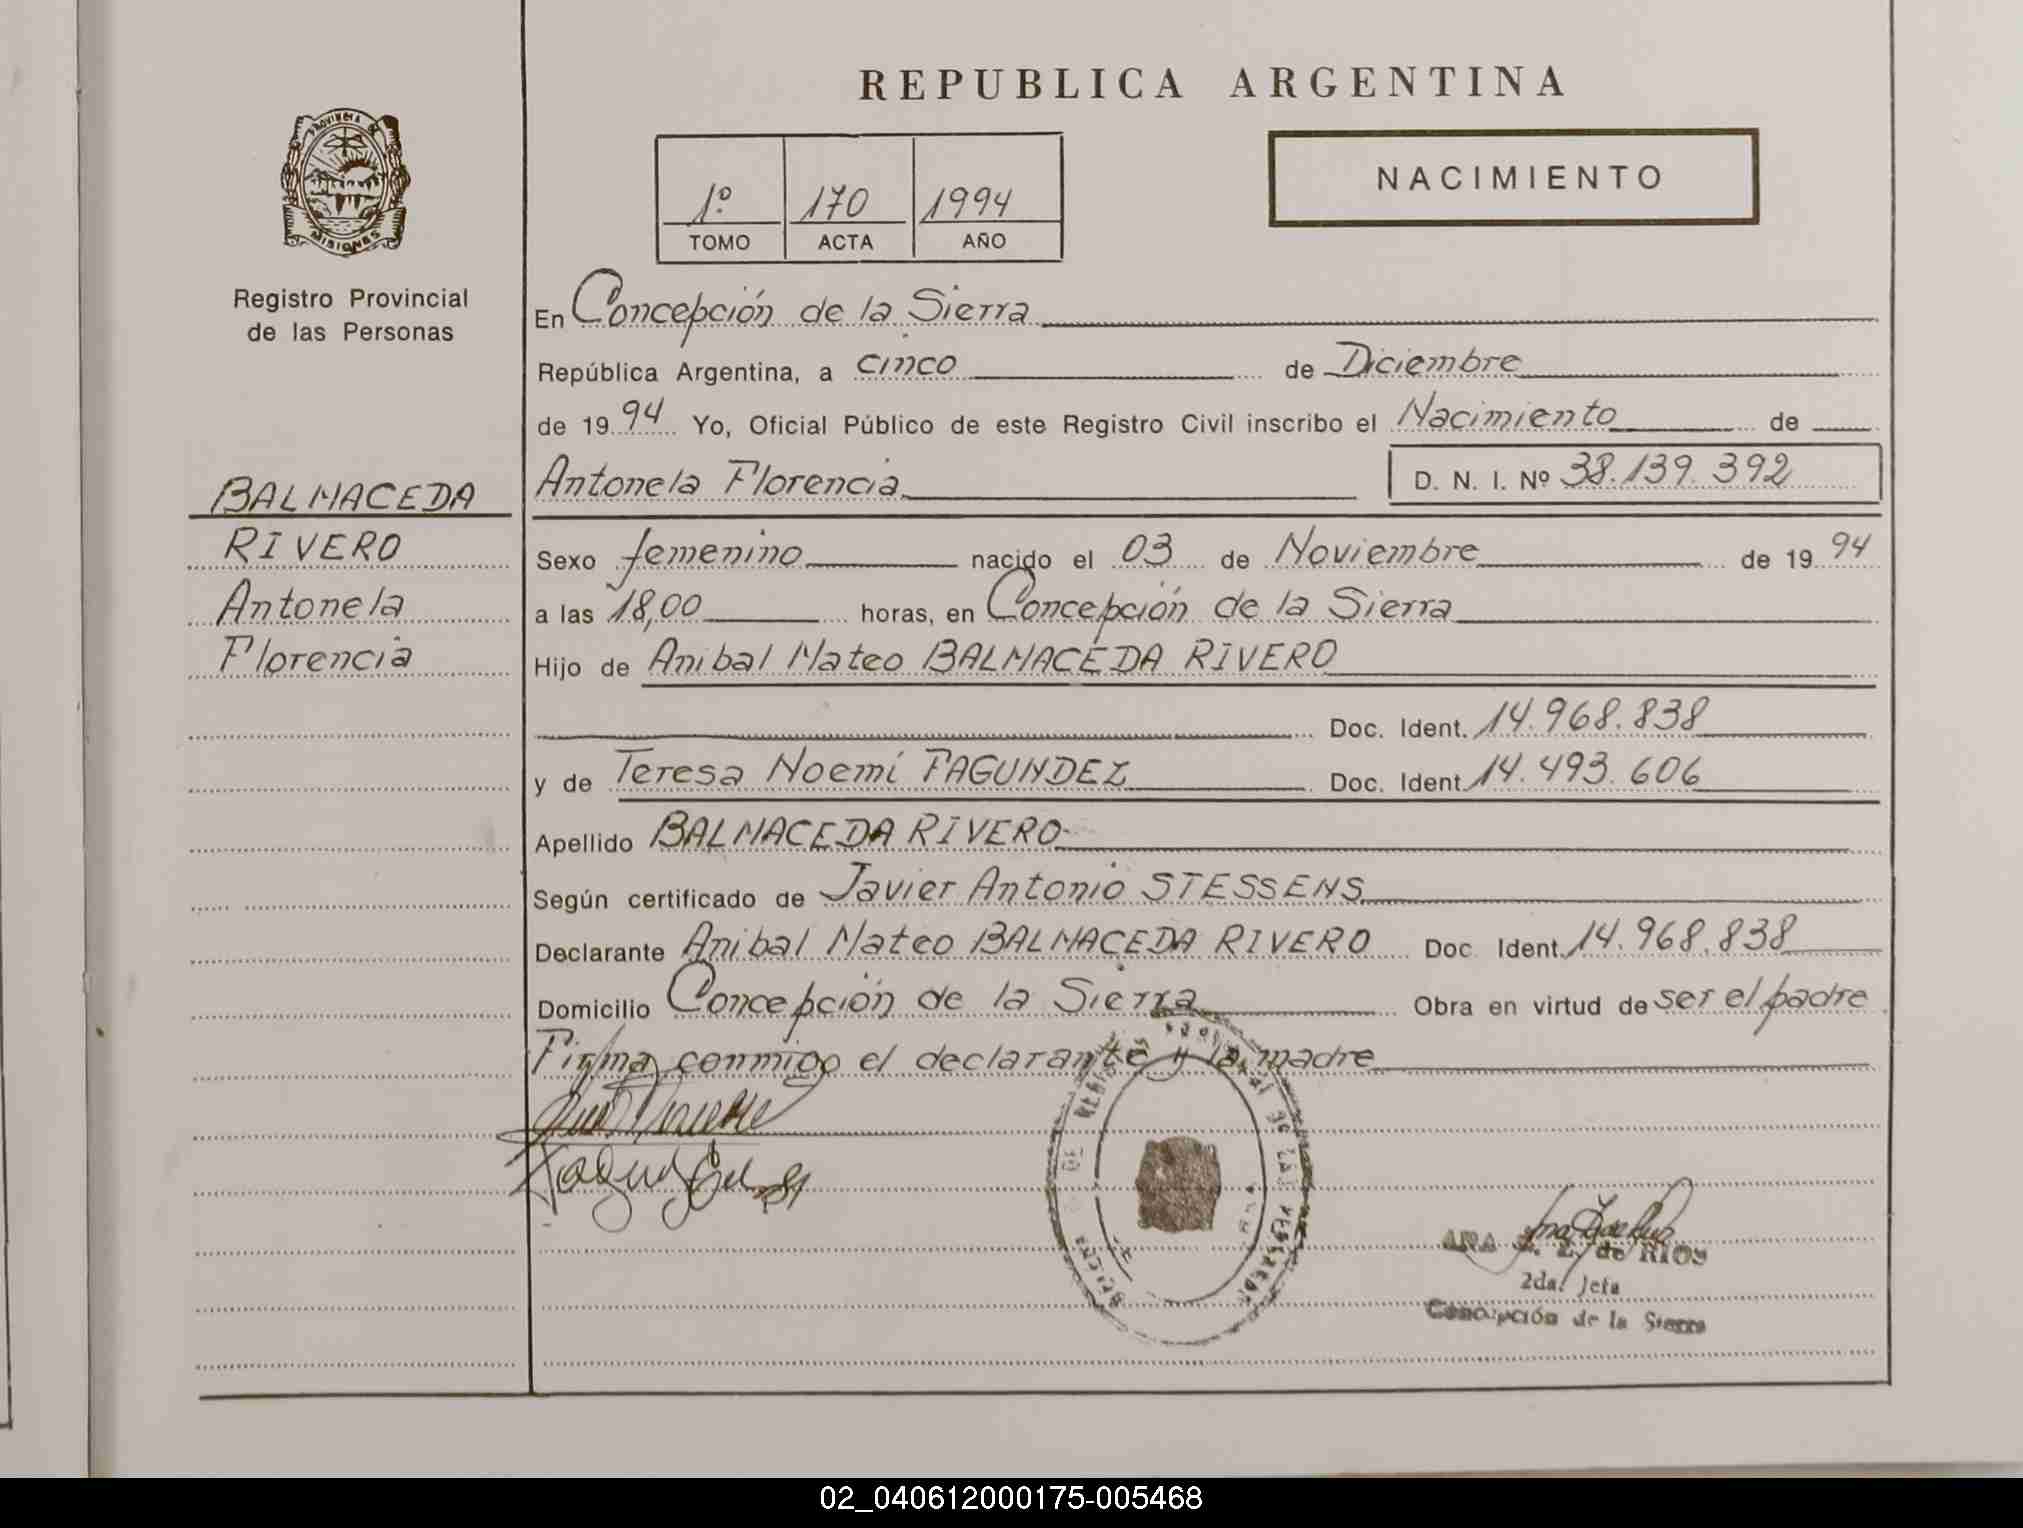 REPUBLICA ARGENTINA
PROVINCIA DE
MISIONES
Registro Provincial
de las Personas
1º 170 1994
TOMO ACTA AÑO
NACIMIENTO
En Concepción de la Sierra
República Argentina, a cinco de Diciembre
de 1994 Yo, Oficial Público de este Registro Civil inscribo el Nacimiento de
Antonela Florencia D. N. I. Nº 38.139.392
BALMACEDA
RIVERO
Antonela
Florencia
Sexo femenino nacido el 03 de Noviembre de 1994
a las 18,00 horas, en Concepción de la Sierra
Hijo de Anibal Mateo BALMACEDA RIVERO
Doc. Ident. 14.968.838
y de Teresa Noemí FAGUNDEZ Doc. Ident. 14.493.606
Apellido BALMACEDA RIVERO
Según certificado de Javier Antonio STESSENS
Declarante Anibal Mateo BALMACEDA RIVERO Doc. Ident. 14.968.838
Domicilio Concepción de la Sierra Obra en virtud de ser el padre
Firma conmigo el declarante y la madre
ANA de RIOS
2da. Jefa
Concepción de la Sierra
02_040612000175-005468